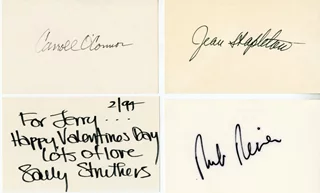 Carroll O'Connor
Jean Stapleton
2/94
For Jerry...
Happy Valentines Day
lots of love
Sally Struthers
Rob Reiner